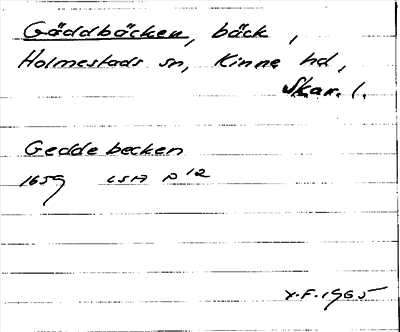 Gäddbäcken, bäck,
Holmestads sn, Kinne hd,
Skar. l.
Gedde becken
1659 LSA P 12
Y.F. 1965